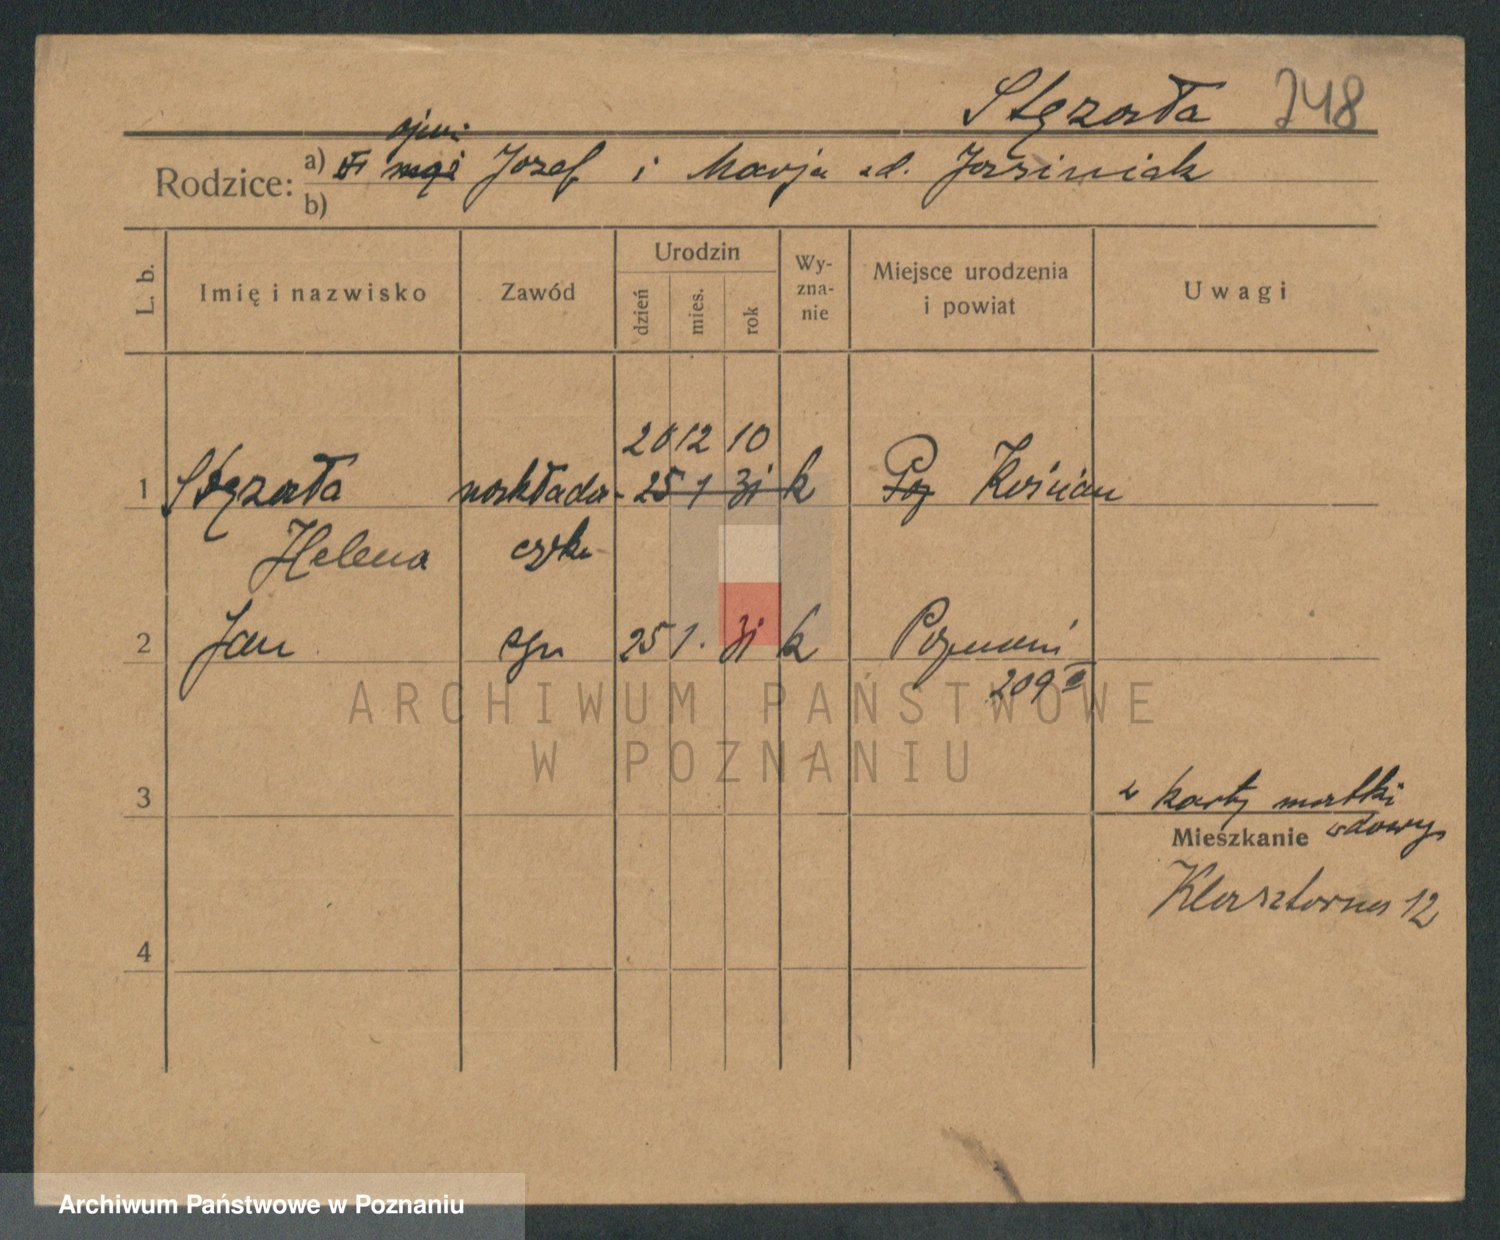 Stęzała 248
ojciec
Rodzice: a) Józef i Marja zd. Jasiniak
b)
L. b. Imię i nazwisko Zawód Urodzin dzień mies. rok Wy-zna-nie Miejsce urodzenia i powiat Uwagi
20 12 10
1 Stęzała nakłada- 25 1 31 k Poz Kościan
Helena czka
2 Jan syn 25 1. 31 k Poznań
209
3
z karty matki
Mieszkanie wdowy
Klasztorna 12
4
ARCHIWUM PAŃSTWOWE
W POZNANIU
Archiwum Państwowe w Poznaniu